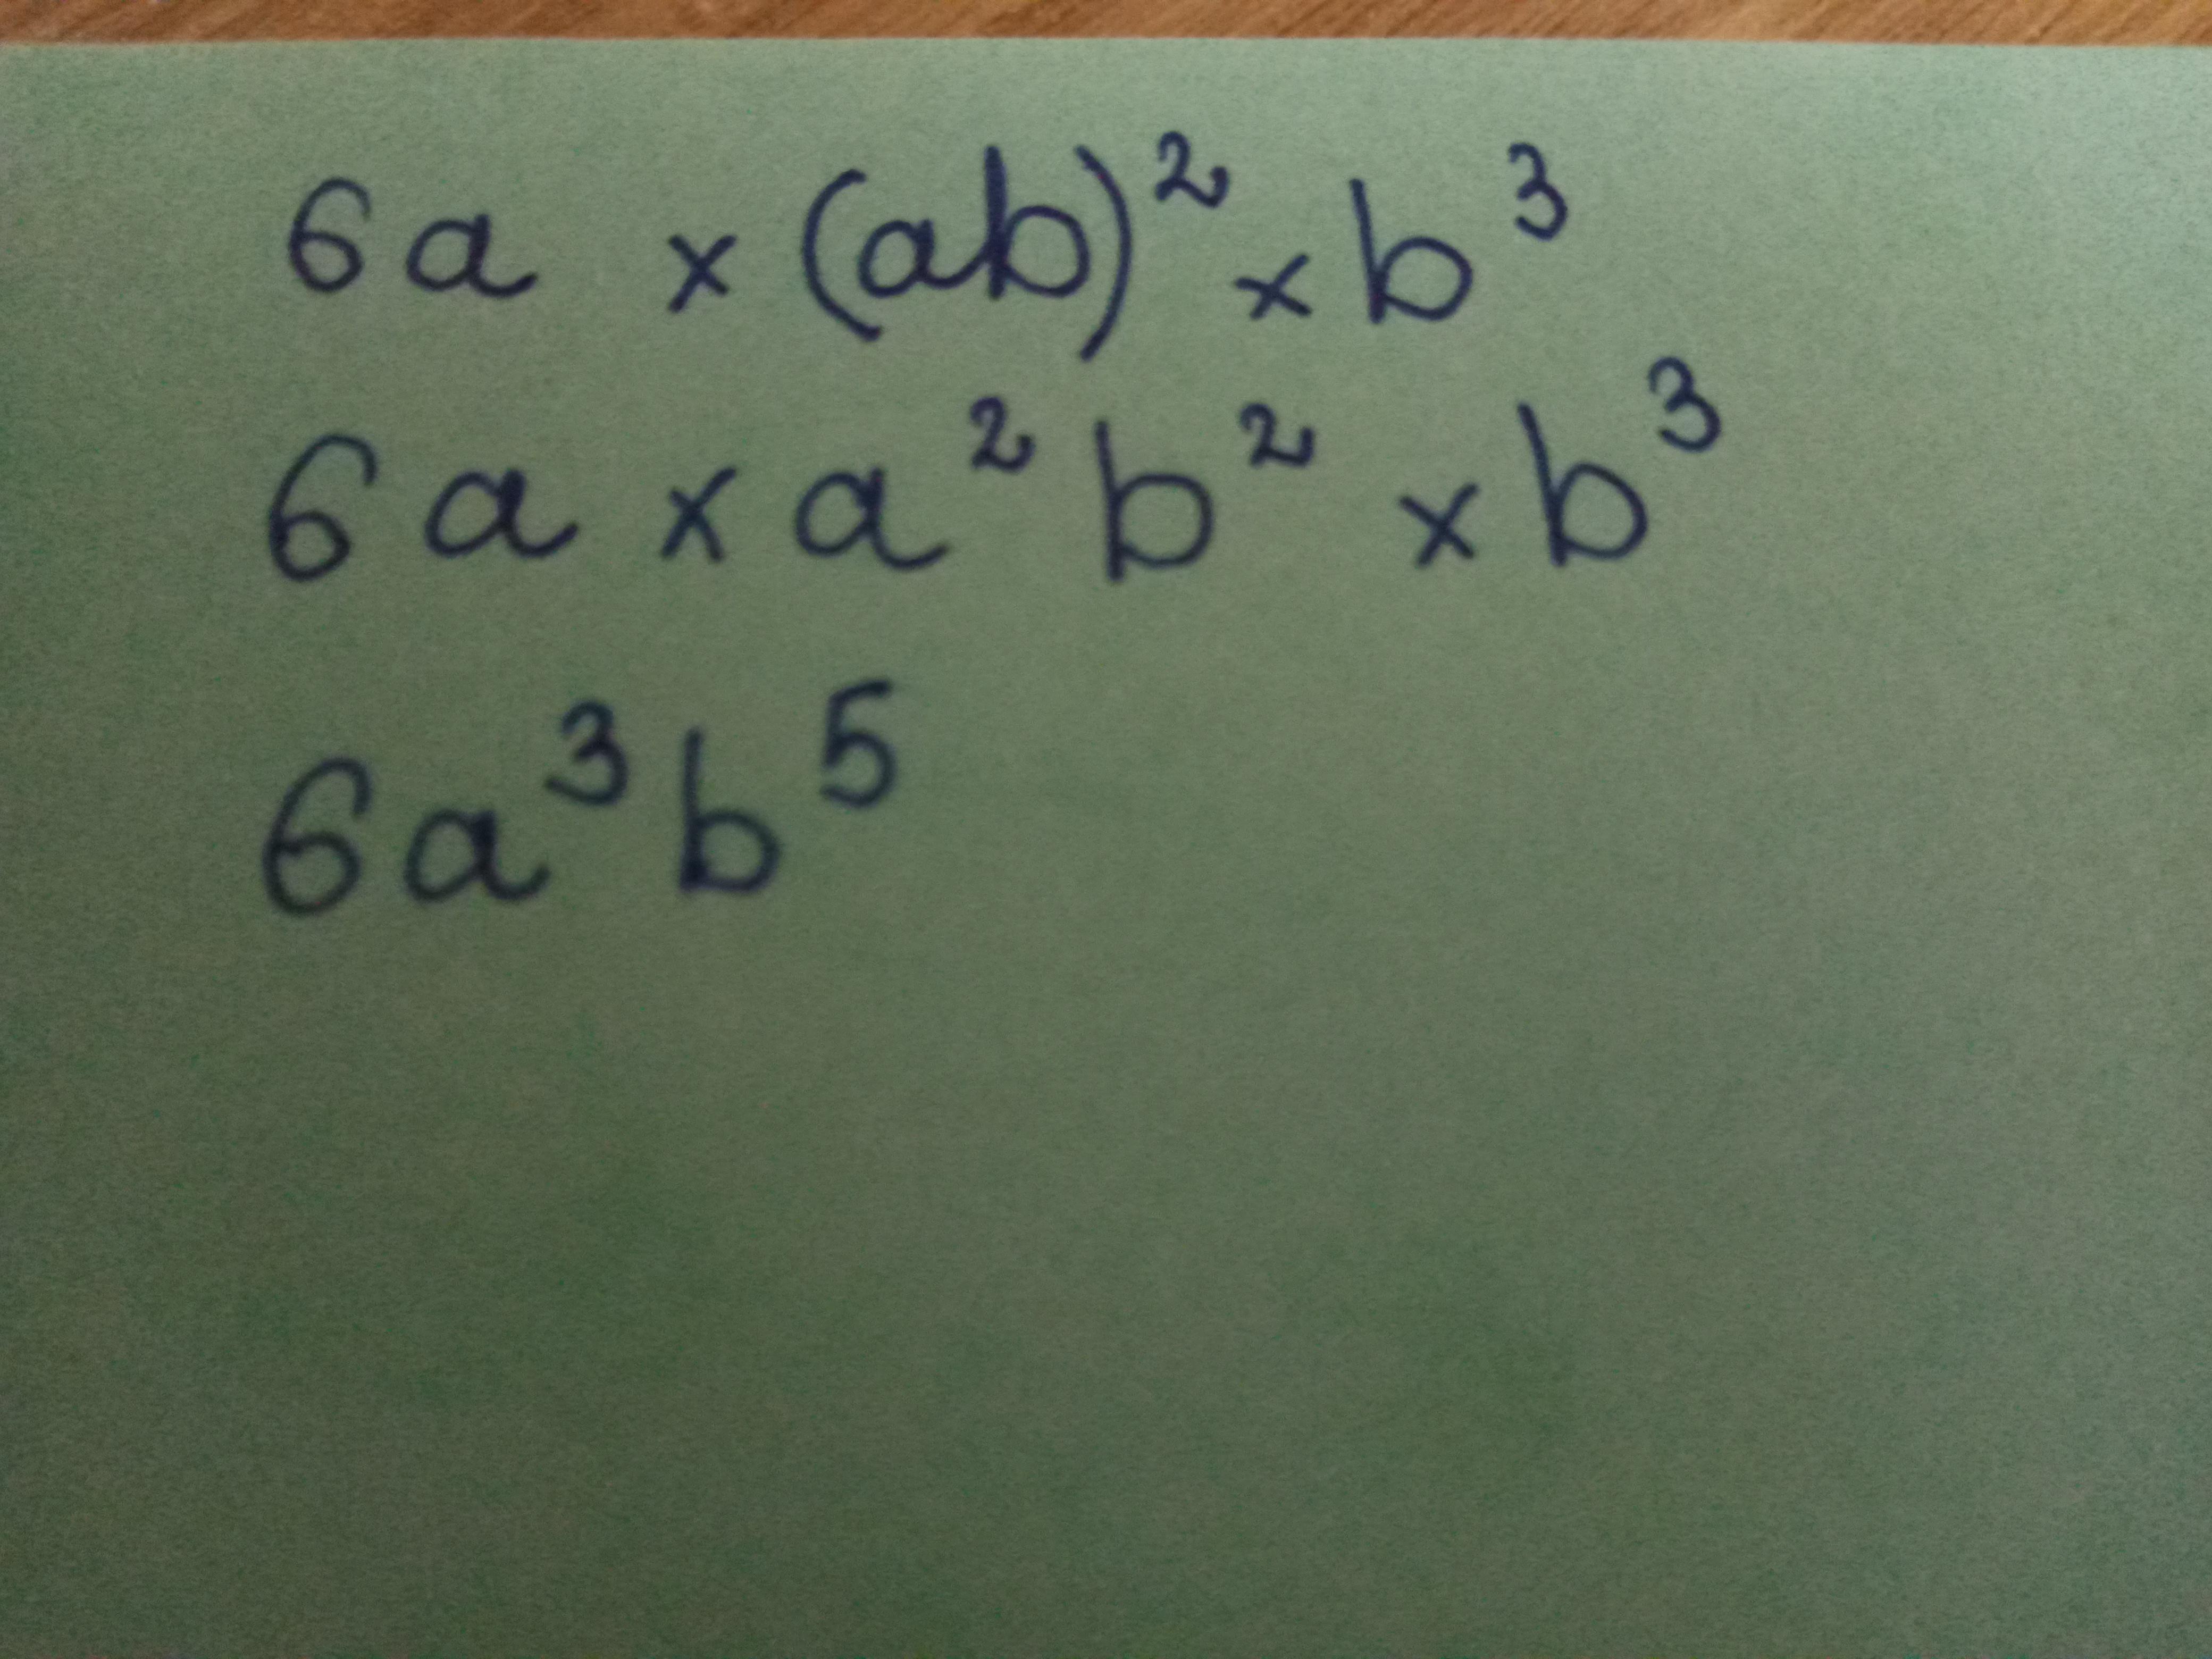 6a × (ab)² × b³
6a × a² b² × b³
6a³ b⁵